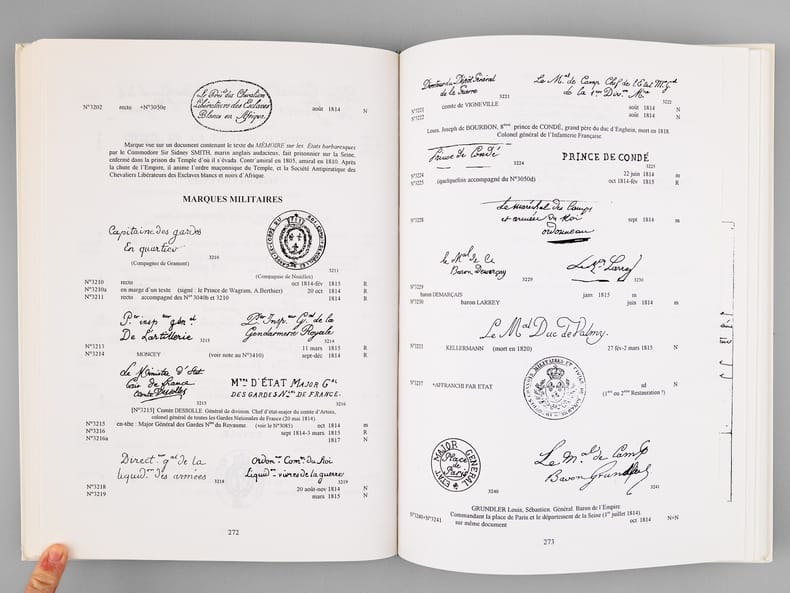 Le Présdt des Chevaliers
Libérateurs des Esclaves
Blancs en Afrique.
N°3202 recto +N°3050e août 1814 N
Marque vue sur un document contenant le texte du MÉMOIRE sur les États barbaresques
par le Commodore Sir Sidney SMITH, marin anglais audacieux, fait prisonnier sur la Seine,
enfermé dans la prison du Temple d'où il s'évada. Contr'amiral en 1805, amiral en 1810. Après
la chute de l'Empire, il anime l'ordre maçonnique du Temple, et la Société Antipiratique des
Chevaliers Libérateurs des Esclaves blancs et noirs d'Afrique.
MARQUES MILITAIRES
Capitaine des gardes
En quartier
3210
(Compagnie de Gramont)
3211
(Compagnie de Noailles)
N°3210 recto oct 1814-fév 1815 R
N°3210a en marge d'un texte (signé : le Prince de Wagram, A.Berthier) 20 oct 1814 R
N°3211 recto accompagné des Nos 3040b et 3210 1814 R
Pier insp gal
De L'artillerie
3213
Pr. Inspr Gal de la
Gendarmerie Royale
3214
N°3213 11 mars 1815 R
N°3214 MONCEY (voir note au N°3410) sept-déc 1814 R
Le Ministre d'Etat
Pair de france
Comte Dessolle
3215
MTRE D'ÉTAT MAJOR GAL
DES GARDES NLES DE FRANCE.
3216
[N°3215] Comte DESSOLLE. Général de division. Chef d'état-major du comte d'Artois,
colonel général de toutes les Gardes Nationales de France (20 mai 1814).
N°3215 en-tête : Major Général des Gardes Nles du Royaume (voir le N°3085) oct 1814 m
N°3216 sept 1814-3 mars 1815 R
N°3216a 1817 N
Directon gal de la
liquidon des armées
3218
Ordonr Comre du Roi
Liquidr vivres de la guerre
3219
N°3218 20 août-nov 1814 N
N°3219 mars 1815 N
272
Directeur du Dépôt Général
de la Guerre
3221
Le Mal de Camp Chef de l'Etat Mjr Gl
de la 1ere Divon Mre
3222
N°3221 comte de VIGNEVILLE août 1814 N
N°3222 août 1814 N
Louis, Joseph de BOURBON, 8ème prince de CONDÉ, grand père du duc d'Enghein, mort en 1818.
Colonel général de l'Infanterie Française
Prince de Condé
3224
PRINCE DE CONDÉ
3225
N°3224 22 juin 1814 m
N°3225 (quelquefois accompagné du N°3050d) oct 1814-fév 1815 R
Le maréchal des Camps
et armées du Roi
ordonneau
N°3228 sept 1814 m
le Mal de Cp
Baron Demarçay
3229
Larrey
3230
N°3229 baron DEMARÇAIS janv 1815 m
N°3230 baron LARREY juin 1814 m
Le Mal Duc de Valmy.
N°3233 KELLERMANN (mort en 1820) 27 fév-2 mars 1815 N
N°3237 +AFFRANCHI PAR ETAT sd N
(1ère ou 2ème Restauration ?)
ETAT MAJOR GENERAL
Place
de
Paris
3240
Le Mal de Camp
Baron Grundler
3241
GRUNDLER Louis, Sébastien. Général. Baron de l'Empire
Commandant la place de Paris et le département de la Seine (1er juillet 1814).
N°3240+N°3241 sur même document oct 1814 N+N
273